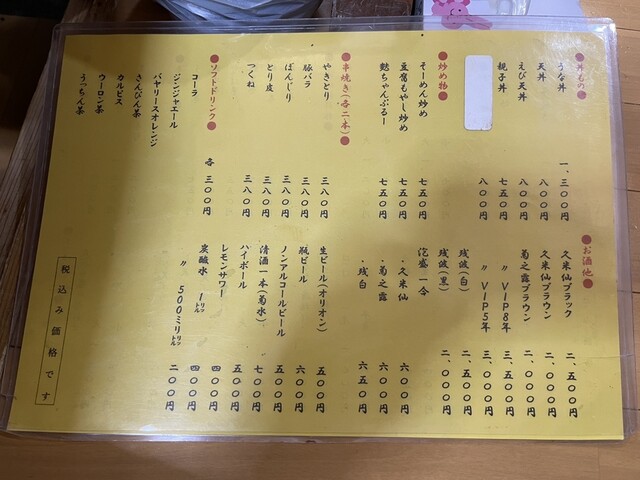 ●丼もの●
うな丼 一、三〇〇円
天丼 八〇〇円
えび天丼 八〇〇円
親子丼 七五〇円
八〇〇円
●炒め物●
そーめん炒め 七五〇円
豆腐もやし炒め 七五〇円
麩ちゃんぷるー 七五〇円
●串焼き(各二本)●
やきとり 三八〇円
豚バラ 三八〇円
ぼんじり 三八〇円
とり皮 三八〇円
つくね 三八〇円
●ソフトドリンク●
コーラ 各 三〇〇円
ジンジャエール
バヤリースオレンジ
さんぴん茶
カルピス
ウーロン茶
うっちん茶
●お酒他●
久米仙ブラック 二、五〇〇円
久米仙ブラウン 二、〇〇〇円
菊之露ブラウン 二、〇〇〇円
〃 VIP8年 三、五〇〇円
〃 VIP5年 三、〇〇〇円
残波(白) 二、五〇〇円
残波(黒) 二、〇〇〇円
泡盛 一合
・久米仙 六〇〇円
・菊之露 六〇〇円
・残白 六五〇円
生ビール(オリオン) 五〇〇円
瓶ビール 六〇〇円
ノンアルコールビール 五〇〇円
清酒一本(菊水) 七〇〇円
ハイボール 五〇〇円
レモンサワー 四〇〇円
炭酸水 1リットル 四〇〇円
〃 500ミリリットル 二〇〇円
税込み価格です